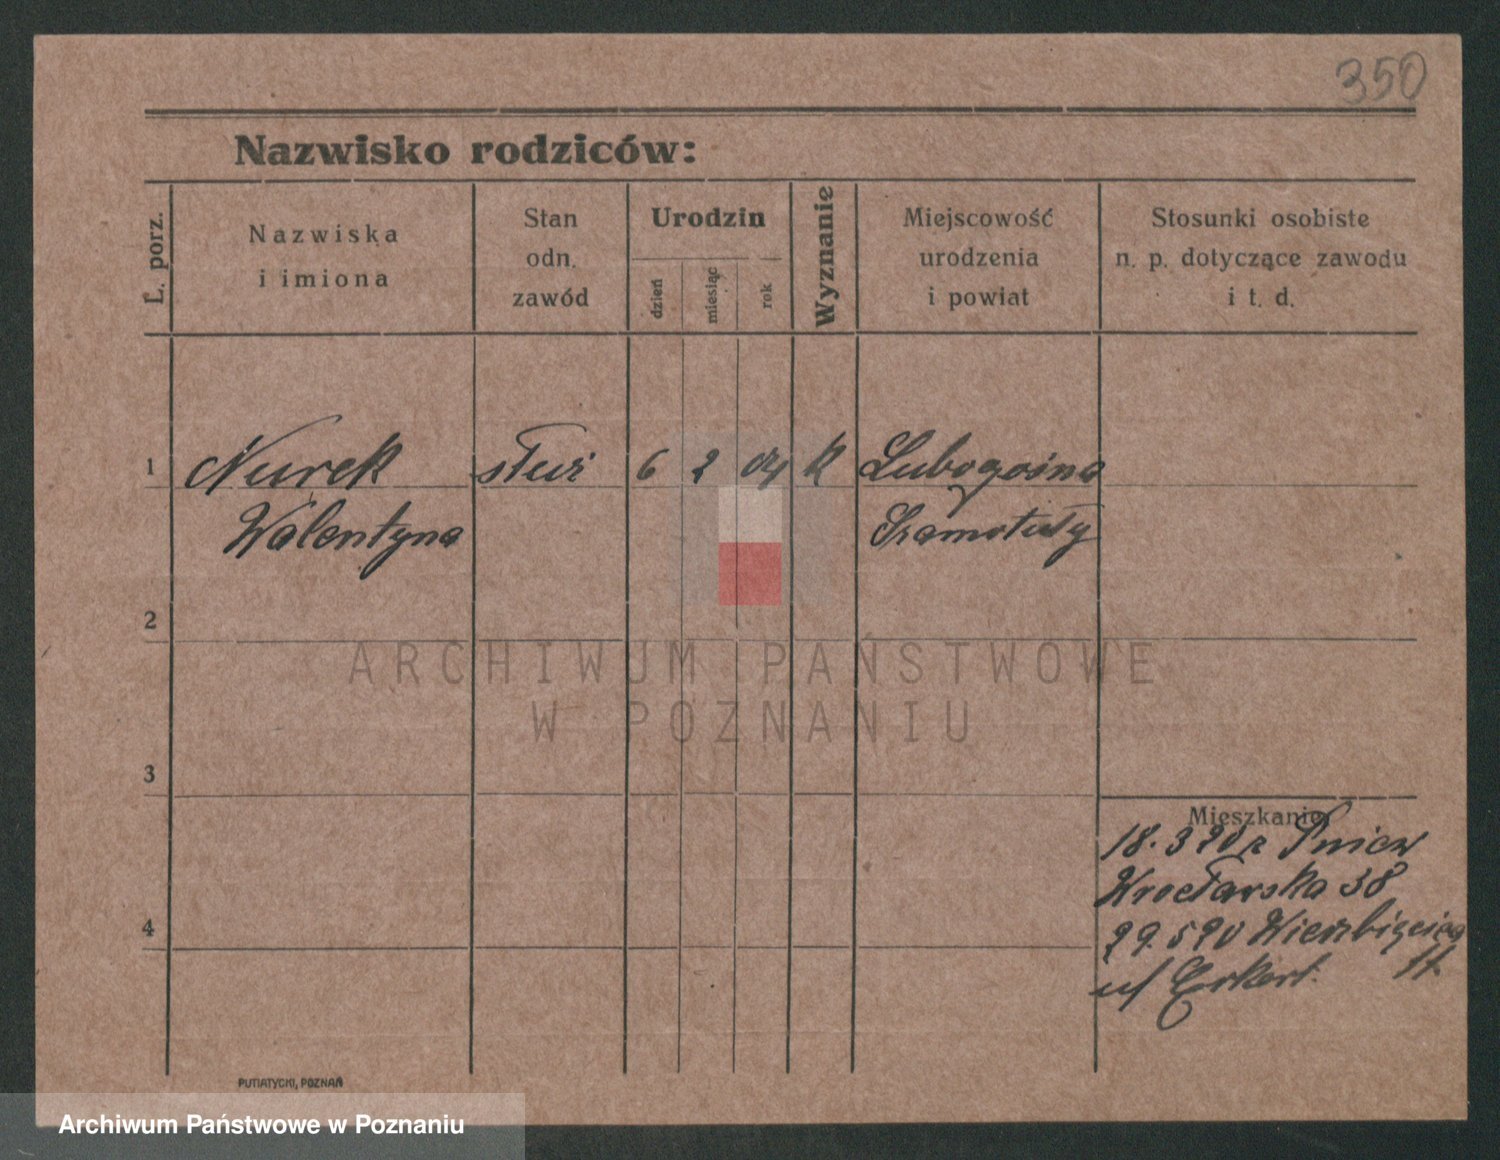 350
Nazwisko rodziców:
L. porz.
Nazwiska
i imiona
Stan
odn.
zawód
Urodzin
dzień
miesiąc
rok
Wyznanie
Miejscowość
urodzenia
i powiat
Stosunki osobiste
n. p. dotyczące zawodu
i t. d.
1 Nurek służ 6 2 04 k
Walentyna Szamotuły
2
ARCHIWUM PAŃSTWOWE
W POZNANIU
3
Mieszkanie
18.3 20 z Pniew
Wrocławska 38
4
29.5 20 Wierzbięcice
u/ Erkert. 11.
PUTIATYCKI, POZNAŃ
Archiwum Państwowe w Poznaniu